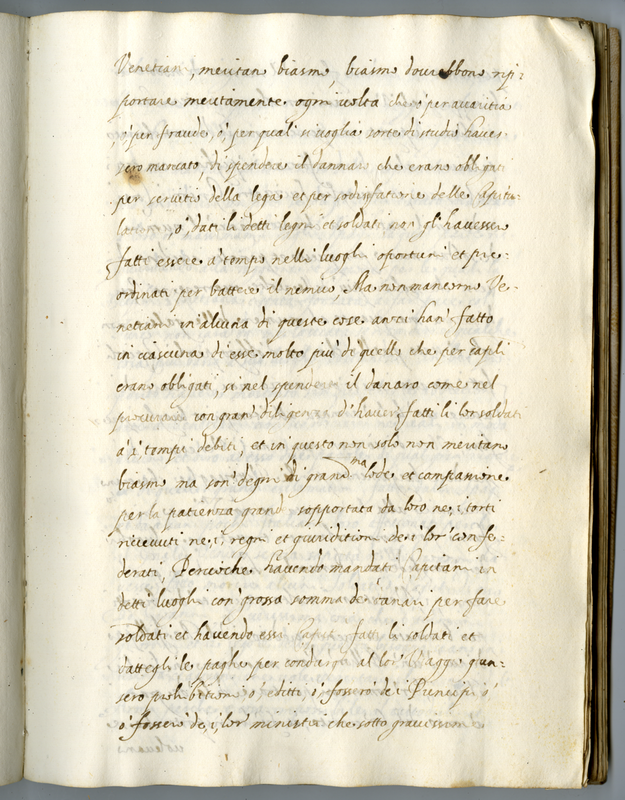 Venetian, meritan biasmo, biasmo dourebbono rip:
portare meritamente ogni uolta che ò per auaritia
, ò per fraude, ò per qual si uoglia sorte di studio haues
sero mancato, di spendere il dannaro che erano obligati
per seruitio della lega et per sodisfatione delle Capitu:
lationi, ò dati li detti legni et soldati non gli hauessero
fatti essere a' tempo nelli luoghi oportuni et pre:
ordinati per battere il nemico, Ma non mancorno Ve:
netiani in alcuna di queste cose anzi han' fatto
in ciascuna di esse molto piu' di quello che per capli
erano obligati, si nel spendere il danaro come nel
procurare con gran diligenza d'hauer fatti li lor soldati
a' i' tempi debiti, et in questo non solo non meritano
biasmo ma son' degni di grand.ma lode et compassione
per la patienza grande sopportata da loro ne, i torti
riceuuti ne, i, regni et giuriditioni de i lor' confe:
derati, Percioche hauendo mandati Capitani in
detti luoghi con' grossa somma de danari per fare
soldati et hauendo essi fatti li soldati et
dattegli le paghe per condurgli al lor' Viaggio giun:
sero prohibitioni ò editti, ò fossero de i Principi ò
ò fossero de, i, lor' ministri che sotto grauissime
uoleuano